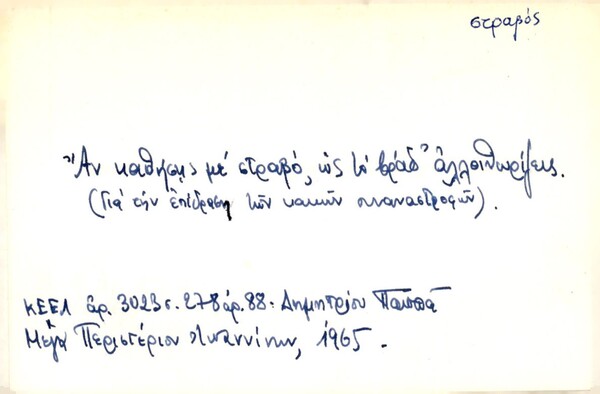 στραβός
Ἄν καθήσῃς μέ στραβό, ὡς τό βράδ' ἀλλοιθωρίζεις.
(Γιά τήν ἐπίδραση τῶν κακῶν συναναστροφῶν).
ΚΕΕΛ ἀρ. 3023 σ. 278 ἀρ. 88. Δημητρίου Παππᾶ
Μέγα Περιστέριον Ἰωαννίνων, 1965.